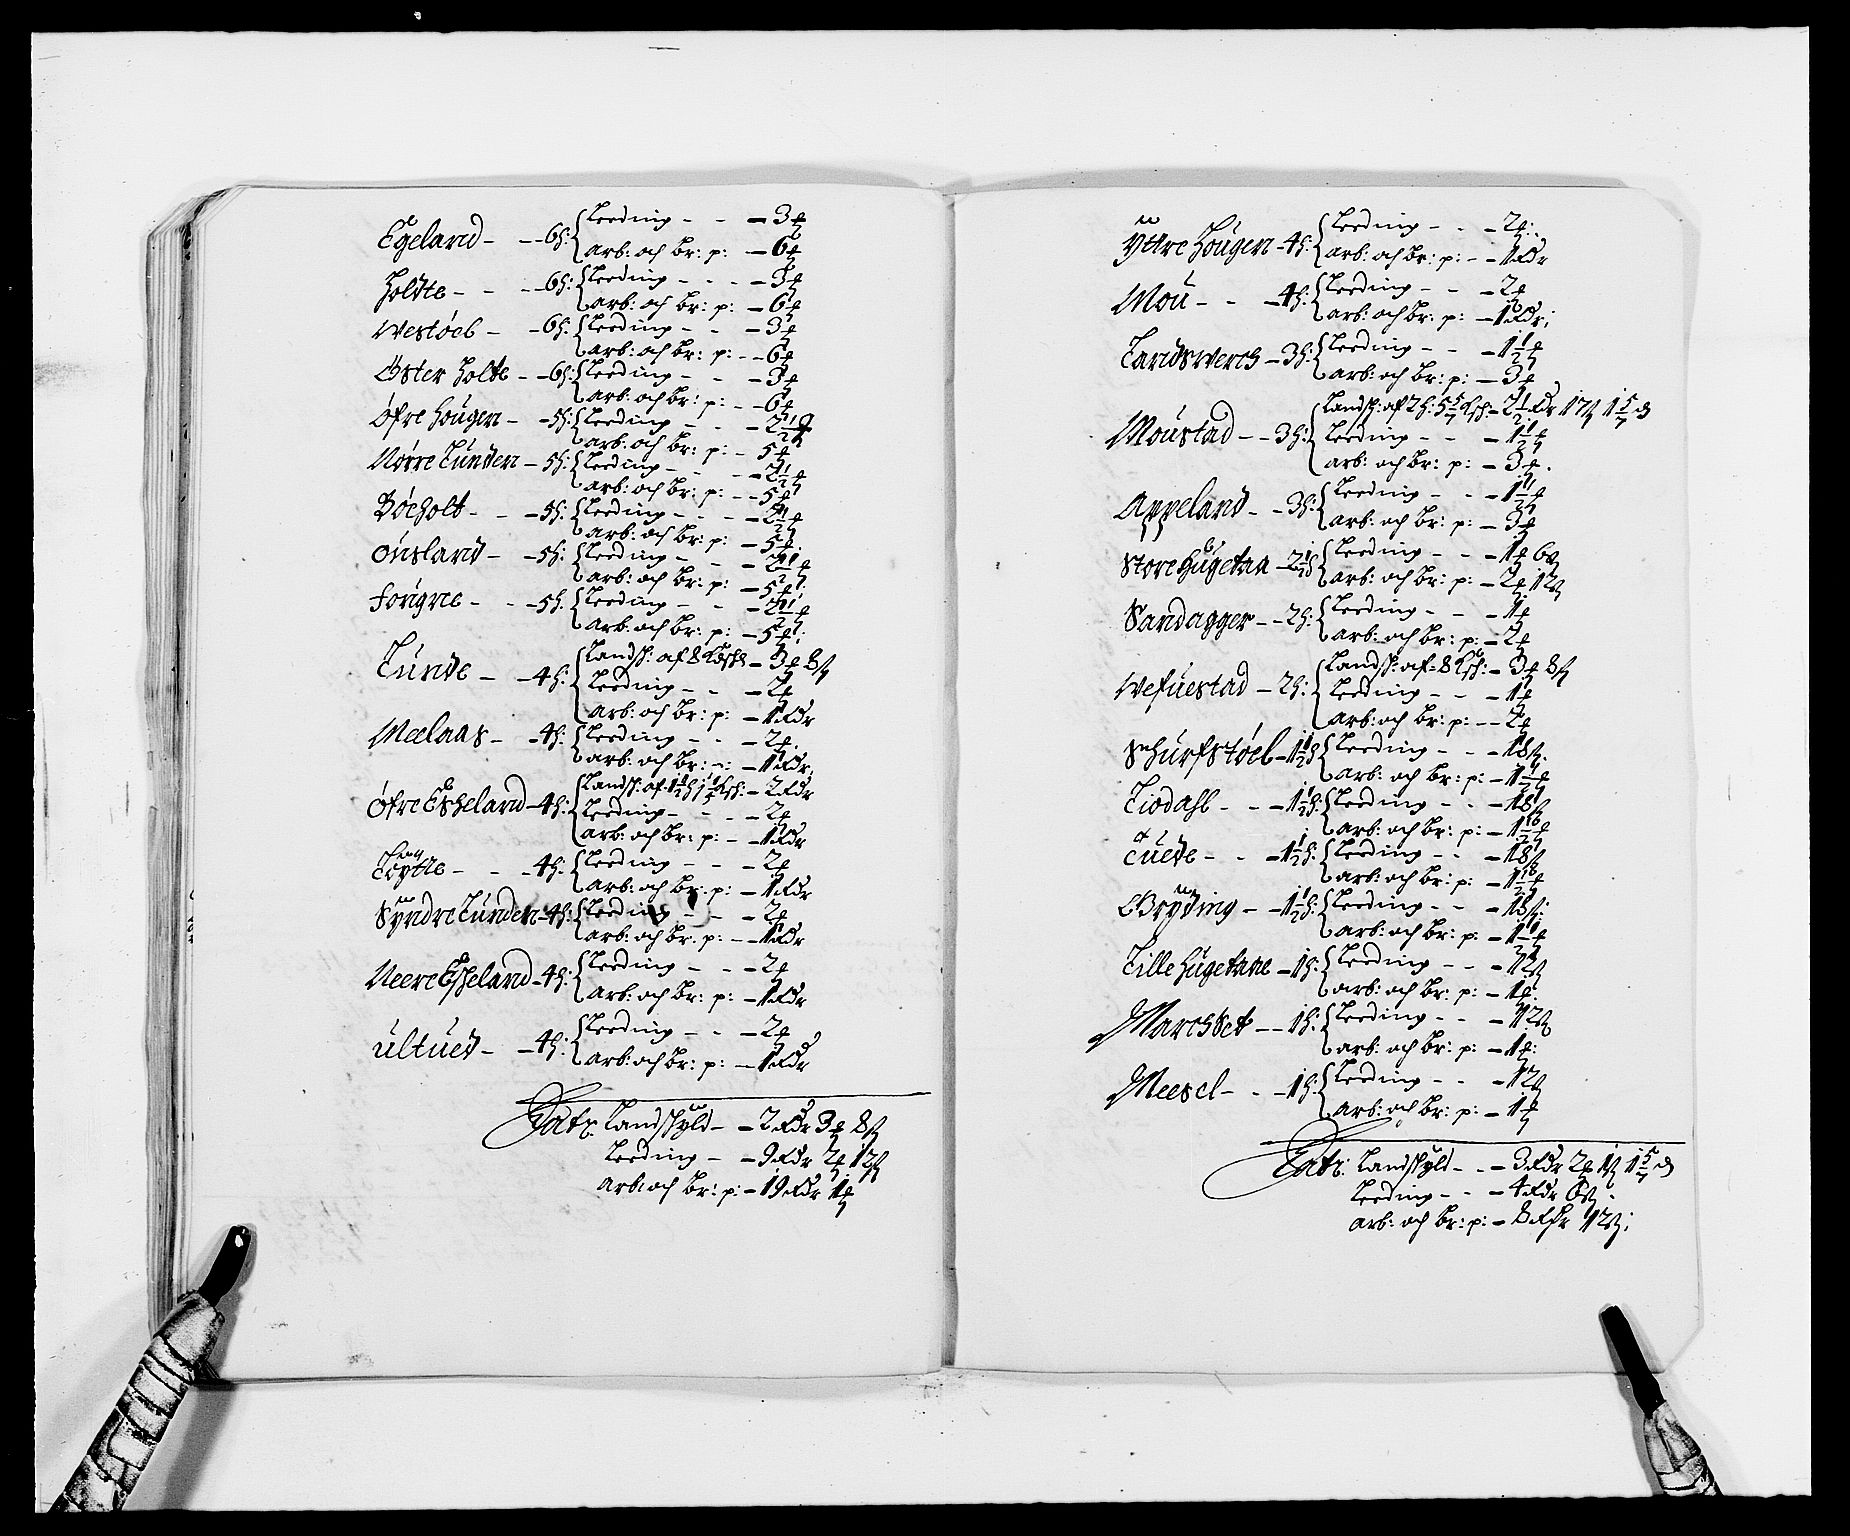 Egeland - - - 6h: Leeding - - - 3 ℔
arb: och br: p: - 6 ℔
Holdte - - - 6h: Leeding - - - 3 ℔
arb: och br: p: - 6 ℔
Westöel - - 6h: Leeding - - - 3 ℔
arb: och br: p: - - 6 ℔
Öster Holte - - 6h: Leeding - - - 3 ℔
arb: och br: p: - - 6 ℔
Öfre Hougen - - 5h: Leeding - - - 2½ ℔
arb: och br: p: - 5 ℔
Nörre Lunden - 5h: Leeding - - - 2½ ℔
arb: och br: p: - - 5 ℔
Böeholt - - - 5h: Leeding - - - 2½ ℔
arb: och br: p: - 5 ℔
Ousland - - 5h: Leeding - - 2½ ℔
arb: och br: p: - 5 ℔
Fougne - - - 5h. Leeding - - 2½ ℔
arb: och br: p: - 5 ℔:
Lunde - - 4h: Landsk: af 8 - 3 ℔ 8 ß
Leeding - - - 2 ℔
arb: och br: p: - 1 Rdr
Meelaas - - 4h: Leeding - - - 2 ℔.
arb: och br: p: - 1 Rdr;
Öfre Eskeland - 4h: Landsk: af - 2 Rdr
Leeding - - - 2 ℔
arb: och br: p: - 1 Rdr
- - - 4h: Leeding - - - 2 ℔
arb: och br. p: - 1 Rdr
Syndre Lunden - 4h: Leeding - - - 2 ℔
arb: och br. p: - - 1 Rdr
Neere Eskeland - 4h: Leeding - - - 2 ℔
arb: och br: p: - 1 Rdr
Ultued - - 4h: Leeding - - - 2 ℔
arb: och br: p: - 1 Rdr
Landskyld - - 2 Rdr 3 ℔ 8 ß
Leeding - - 9 Rdr 2 ℔ 12 ß
arb: och br: p: - 19 Rdr 1 ℔
Yttre Hougen - 4h: Leeding - - - 2 ℔:
arb: och br: p: - - 1 Rdr
Mou - - - 4h: Leeding - - - 2 ℔
arb: och br: p: - 1 Rdr;
Landswerch - 3h: Leeding - - - 1½ ℔
arb: och br: p: - 3 ℔
Moustad - - 3h: Landsk: af 2h: 5 5/7 - 2½ Rdr 17 ß 1 5/7 d
Leeding - - - 1½ ℔
arb: och br: p: - 3 ℔.
Appeland - - 3h: Leeding - - - 1½ ℔
arb: och br: p: - 3 ℔
Store Hugetaa - 2½h Leeding - - - 1 ℔ 6 ß
arb: och br: p: - 2 ℔ 12 ß
Sandagger - - 2h: Leeding - - 1 ℔
arb: och br: p: - 2 ℔
Wefuestad - 2h: Landsk: af - 8 - 3 ℔ 8 ß
Leeding - - - 1 ℔
arb: och br: p: - - 2 ℔
Schurfstöel - 1½h Leeding - - - 18 ß.
arb: och br: p: - 1½ ℔
Liodahl - - - 1½h: Leeding - - - 18 ß
arb: och br: p: - 1½ ℔
Tuede - - - 1½h: Leeding - - - 18 ß
arb: och br: p: - 1½ ℔
Gryding - - 1½h: Leeding - - - 18 ß:
arb: och br: p: - 1½ ℔
Lille Hugetane - 1h: Leeding - - - 12 ß
arb: och br: p: - 1 ℔:
Marchset - - 1h: Leeding - - - 12 ß
arb: och br: p: - 1 ℔:
Meesel - - - 1h: Leeding - - - 12 ß
arb: och br: p: - 1 ℔
Landskyld - - - 3 Rdr 2 ℔ 1 ß 1 5/7 d
Leeding - - - 4 Rdr 6 ß.
arb: och br: p: - 8 Rdr 12 ß;